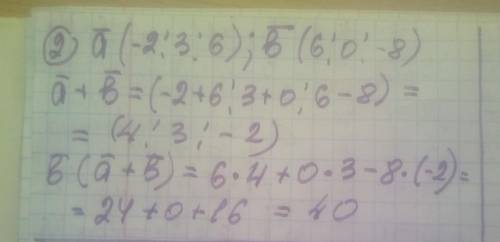 2) a̅ (-2; 3; 6); b̅ (6; 0; -8)
a̅ + b̅ = (-2+6; 3+0; 6-8) =
= (4; 3; -2)
b̅ (a̅ + b̅) = 6·4+0·3-8·(-2)=
= 24+0+16 = 40